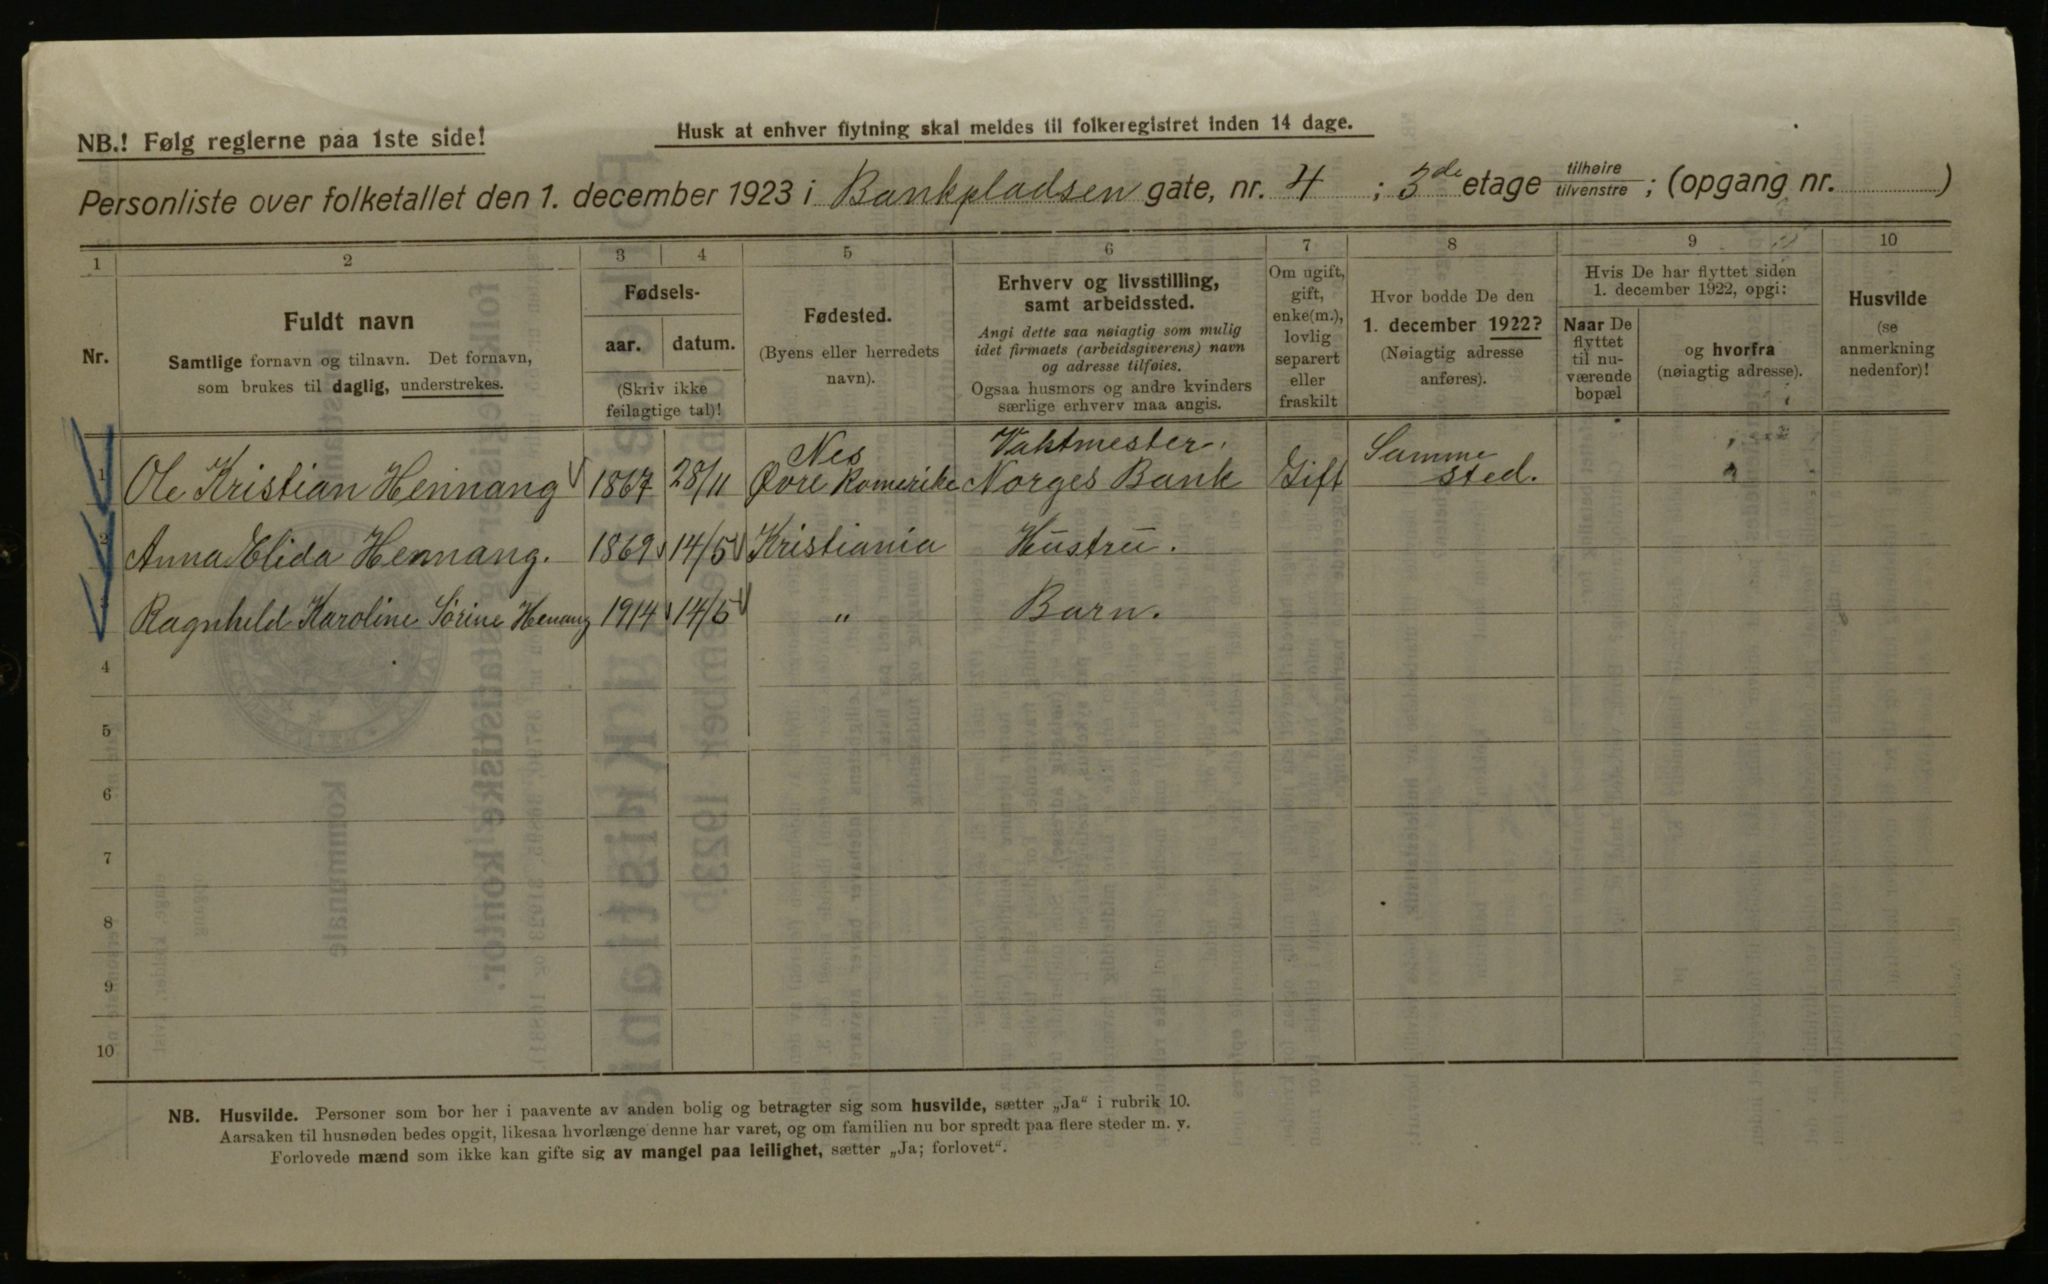 NB.! Følg reglerne paa 1ste side!
Husk at enhver flytning skal meldes til folkeregistret inden 14 dage.
Personliste over folketallet den 1. december 1923 i Bankpladsen gate, nr. 4 ; 3de etage tilhøire tilvenstre ; (opgang nr. )
1 2 3 4 5 6 7 8 9 10
Nr.
Fuldt navn
Samtlige fornavn og tilnavn. Det fornavn,
som brukes til daglig, understrekes.
Fødsels-
aar. datum.
(Skriv ikke
feilagtige tal)!
Fødested.
(Byens eller herredets
navn).
Erhverv og livsstilling,
samt arbeidssted.
Angi dette saa nøiagtig som mulig
idet firmaets (arbeidsgiverens) navn
og adresse tilføies.
Ogsaa husmørs og andre kvinders
særlige erhverv maa angis.
Om ugift,
gift,
enke(m.),
lovlig
separert
eller
fraskilt
Hvor bodde De den
1. december 1922?
(Nøiagtig adresse
anføres).
Hvis De har flyttet siden
1. december 1922, opgi:
Naar De
flyttet
til nu-
værende
bopæl
og hvorfra
(nøiagtig adresse).
Husvilde
(se
anmerkning
nedenfor)!
1 Ole Kristian Hennang 1867 28/11 Nes Øvre Romerike Vaktmester. Norges Bank Gift Samme sted.
2 Anna Elida Hennang. 1869 14/5 Kristiania Hustru.
3 Ragnhild Karoline Sørine Henang 1914 14/5 „ Barn.
4
5
6
7
8
9
10
NB. Husvilde. Personer som bor her i paavente av anden bolig og betragter sig som husvilde, sætter „Ja“ i rubrik 10.
Aarsaken til husnøden bedes opgit, likesaa hvorlænge denne har varet, og om familien nu bor spredt paa flere steder m. v.
Forlovede mænd som ikke kan gifte sig av mangel paa leilighet, sætter „Ja; forlovet“.